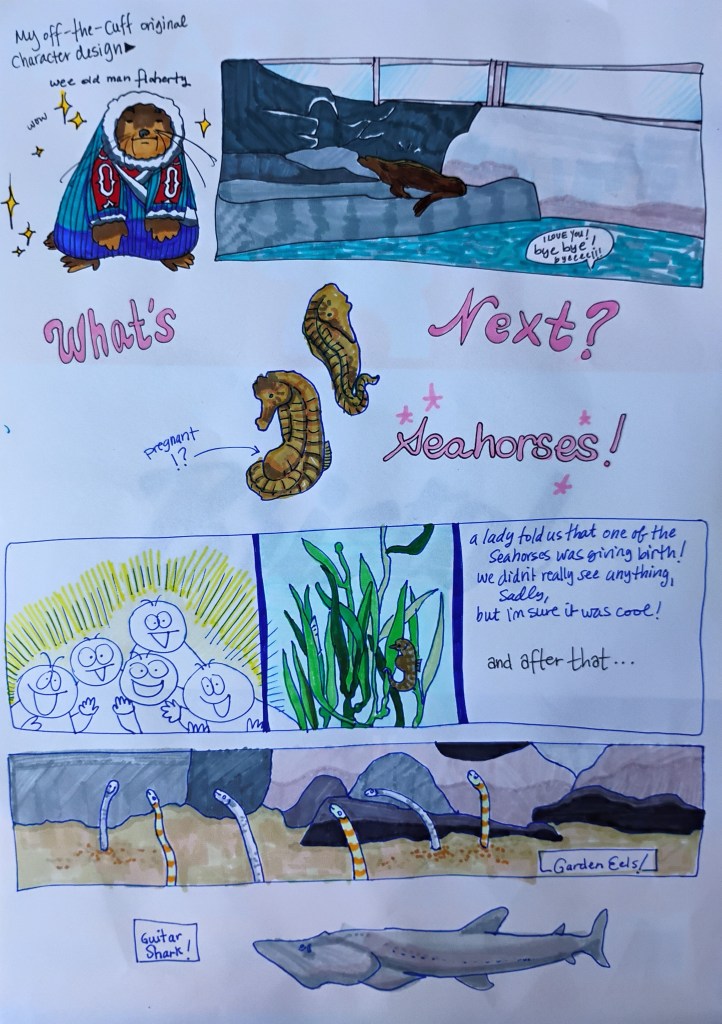 My off-the-cuff original
Character design▶
wee old man flaherty
wow
I LOVE YOU!
bye bye!
byeeeeji!
What's Next?
Seahorses!
pregnant
!?
a lady told us that one of the
Seahorses was giving birth!
we didn't really see anything,
Sadly,
but i'm sure it was cool!
and after that...
Garden Eels!
Guitar
Shark!